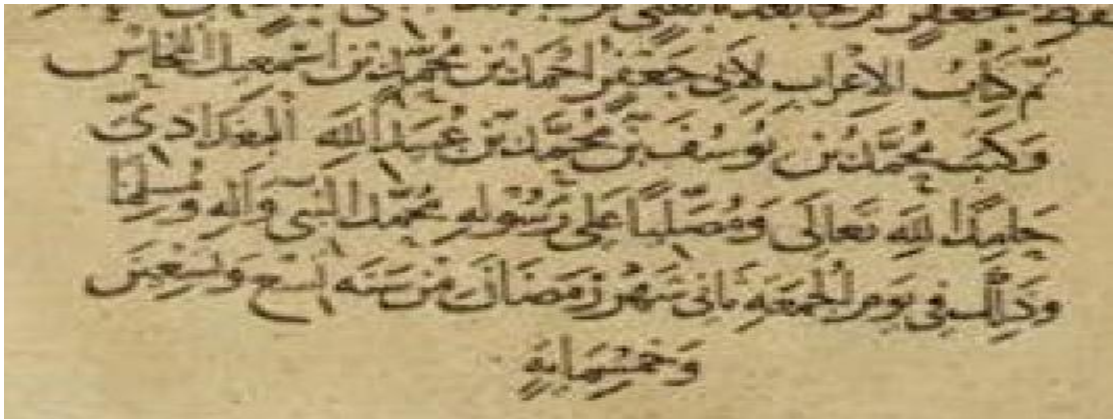 تم كتاب الاعراب لابي جعفر احمد بن محمد بن اسمعيل النحاس
وَكَتَبَ محمد بن يُوسُفَ بن محمد بن عُبَيد الله البغدادي
حامِدًا لله تعالى وَمُصَلِّيًا على رَسُوله محمد النبي وآله وَمُسلِّمًا
وذلك في يوم الجمعة ثاني شهر رَمَضَانَ مِن سَنَه تسع وَتِسْعِينَ
وَخَمْسِمايَةٍ